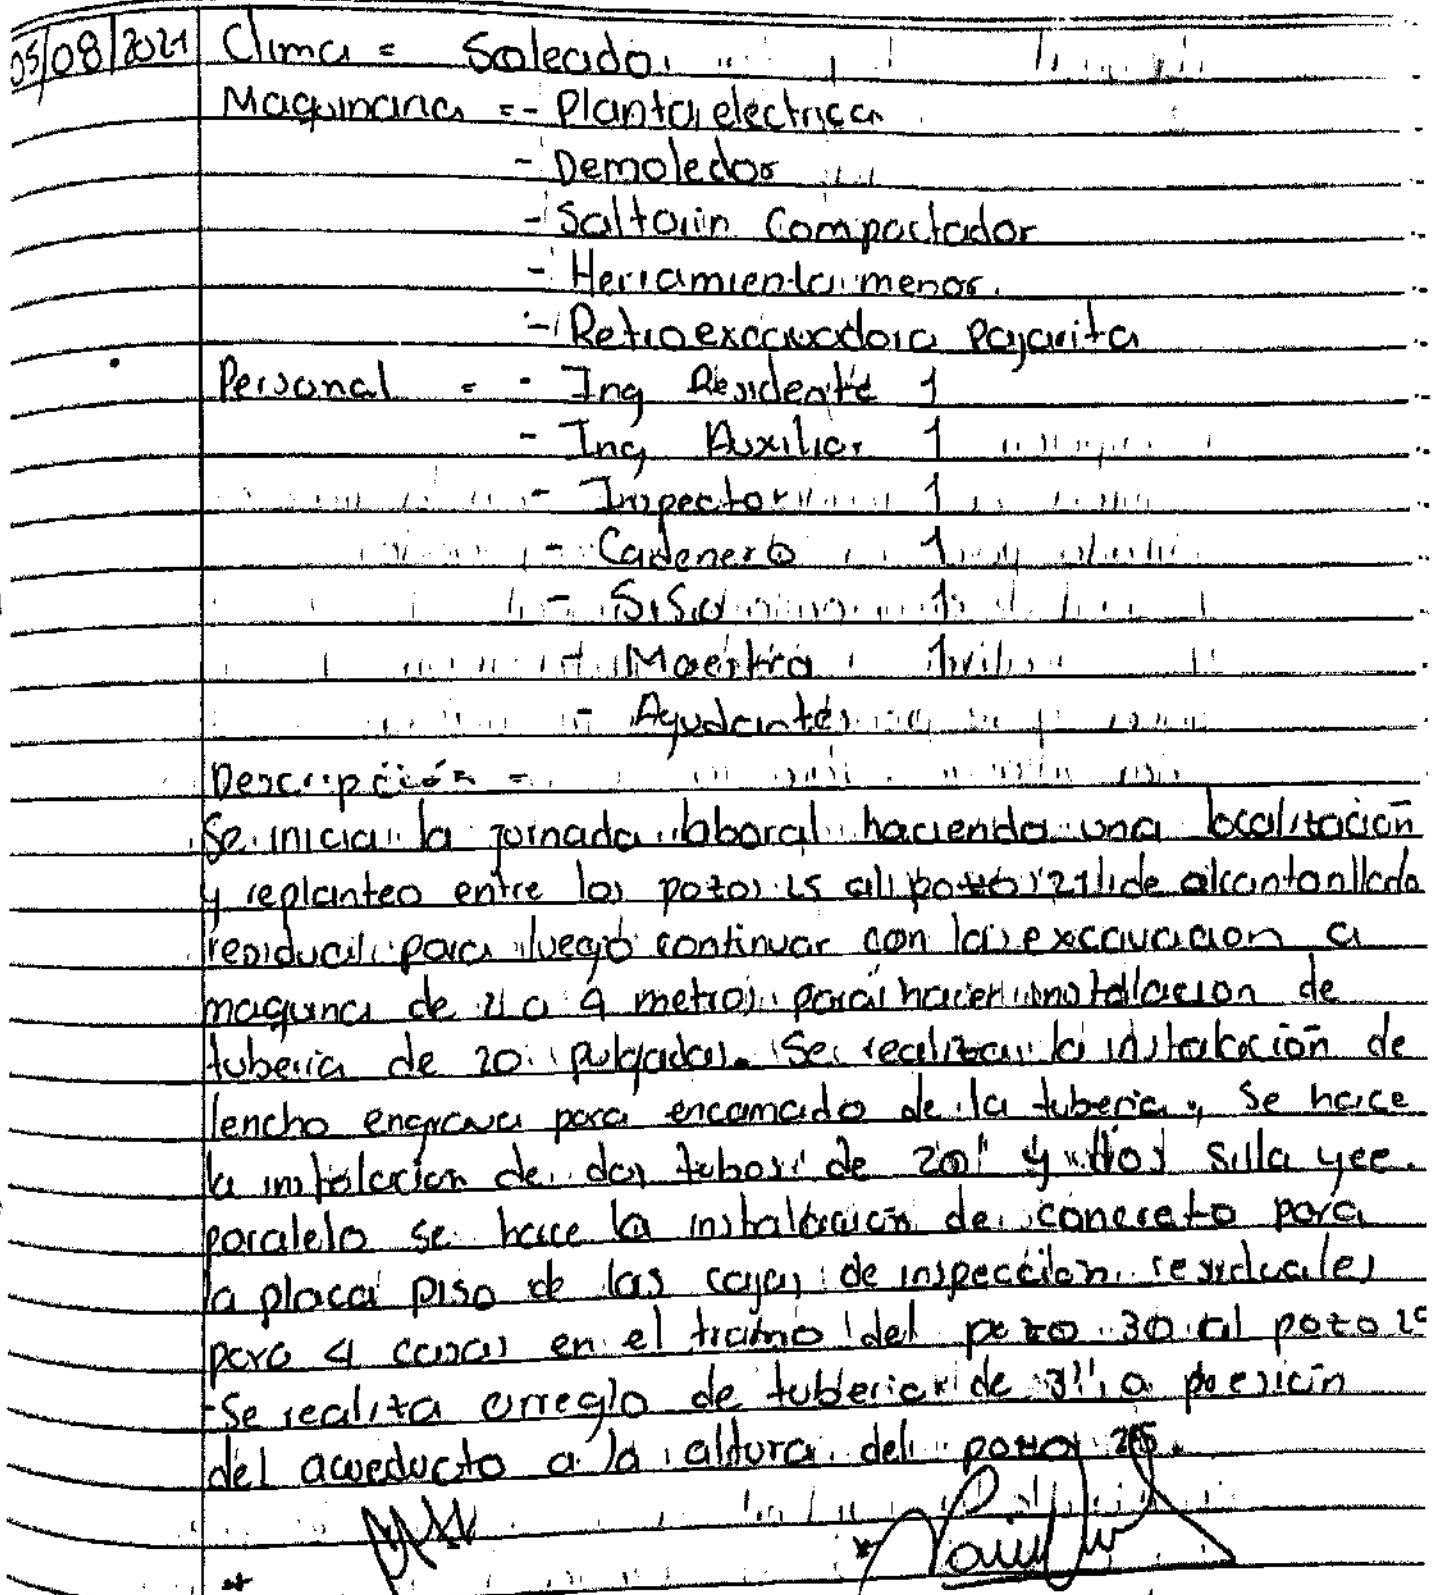 05/08/2021 Clima = Soleado.
Maquinaria = - Planta electrica
- Demoledor
- Saltarin Compactador
- Herramienta menor.
- Retroexcavadora Pajarita
Personal = - Ing Residente 1
- Ing Auxiliar 1
- Inspector 1
- Cadenero 1
- SISO 1
- Maestro 1
- Ayudantes
Descripción =
Se inicia la jornada laboral haciendo una localización
y replanteo entre los pozos 25 al pozo 21 de alcantarillado
residual para luego continuar con la excavacion a
maquina de a 4 metros para hacer instalacion de
tuberia de 20 pulgadas. Se realiza la instalación de
lencho engrava para encamado de la tuberia, Se hace
la instalacion de dos tubos de 20" y dos silla yee.
paralelo se hace la instalación de concreto para
la placa piso de las cajas de inspeccion residuales
para 4 casas en el tramo del pozo 30 al pozo
-Se realiza arreglo de tuberia de 3" a posición
del acueducto a la altura del pozo 25.